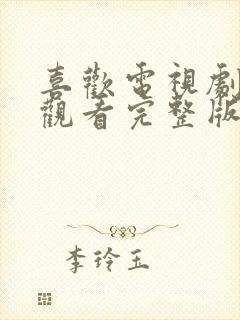 喜歡電視劇
觀看完整版
李玲玉